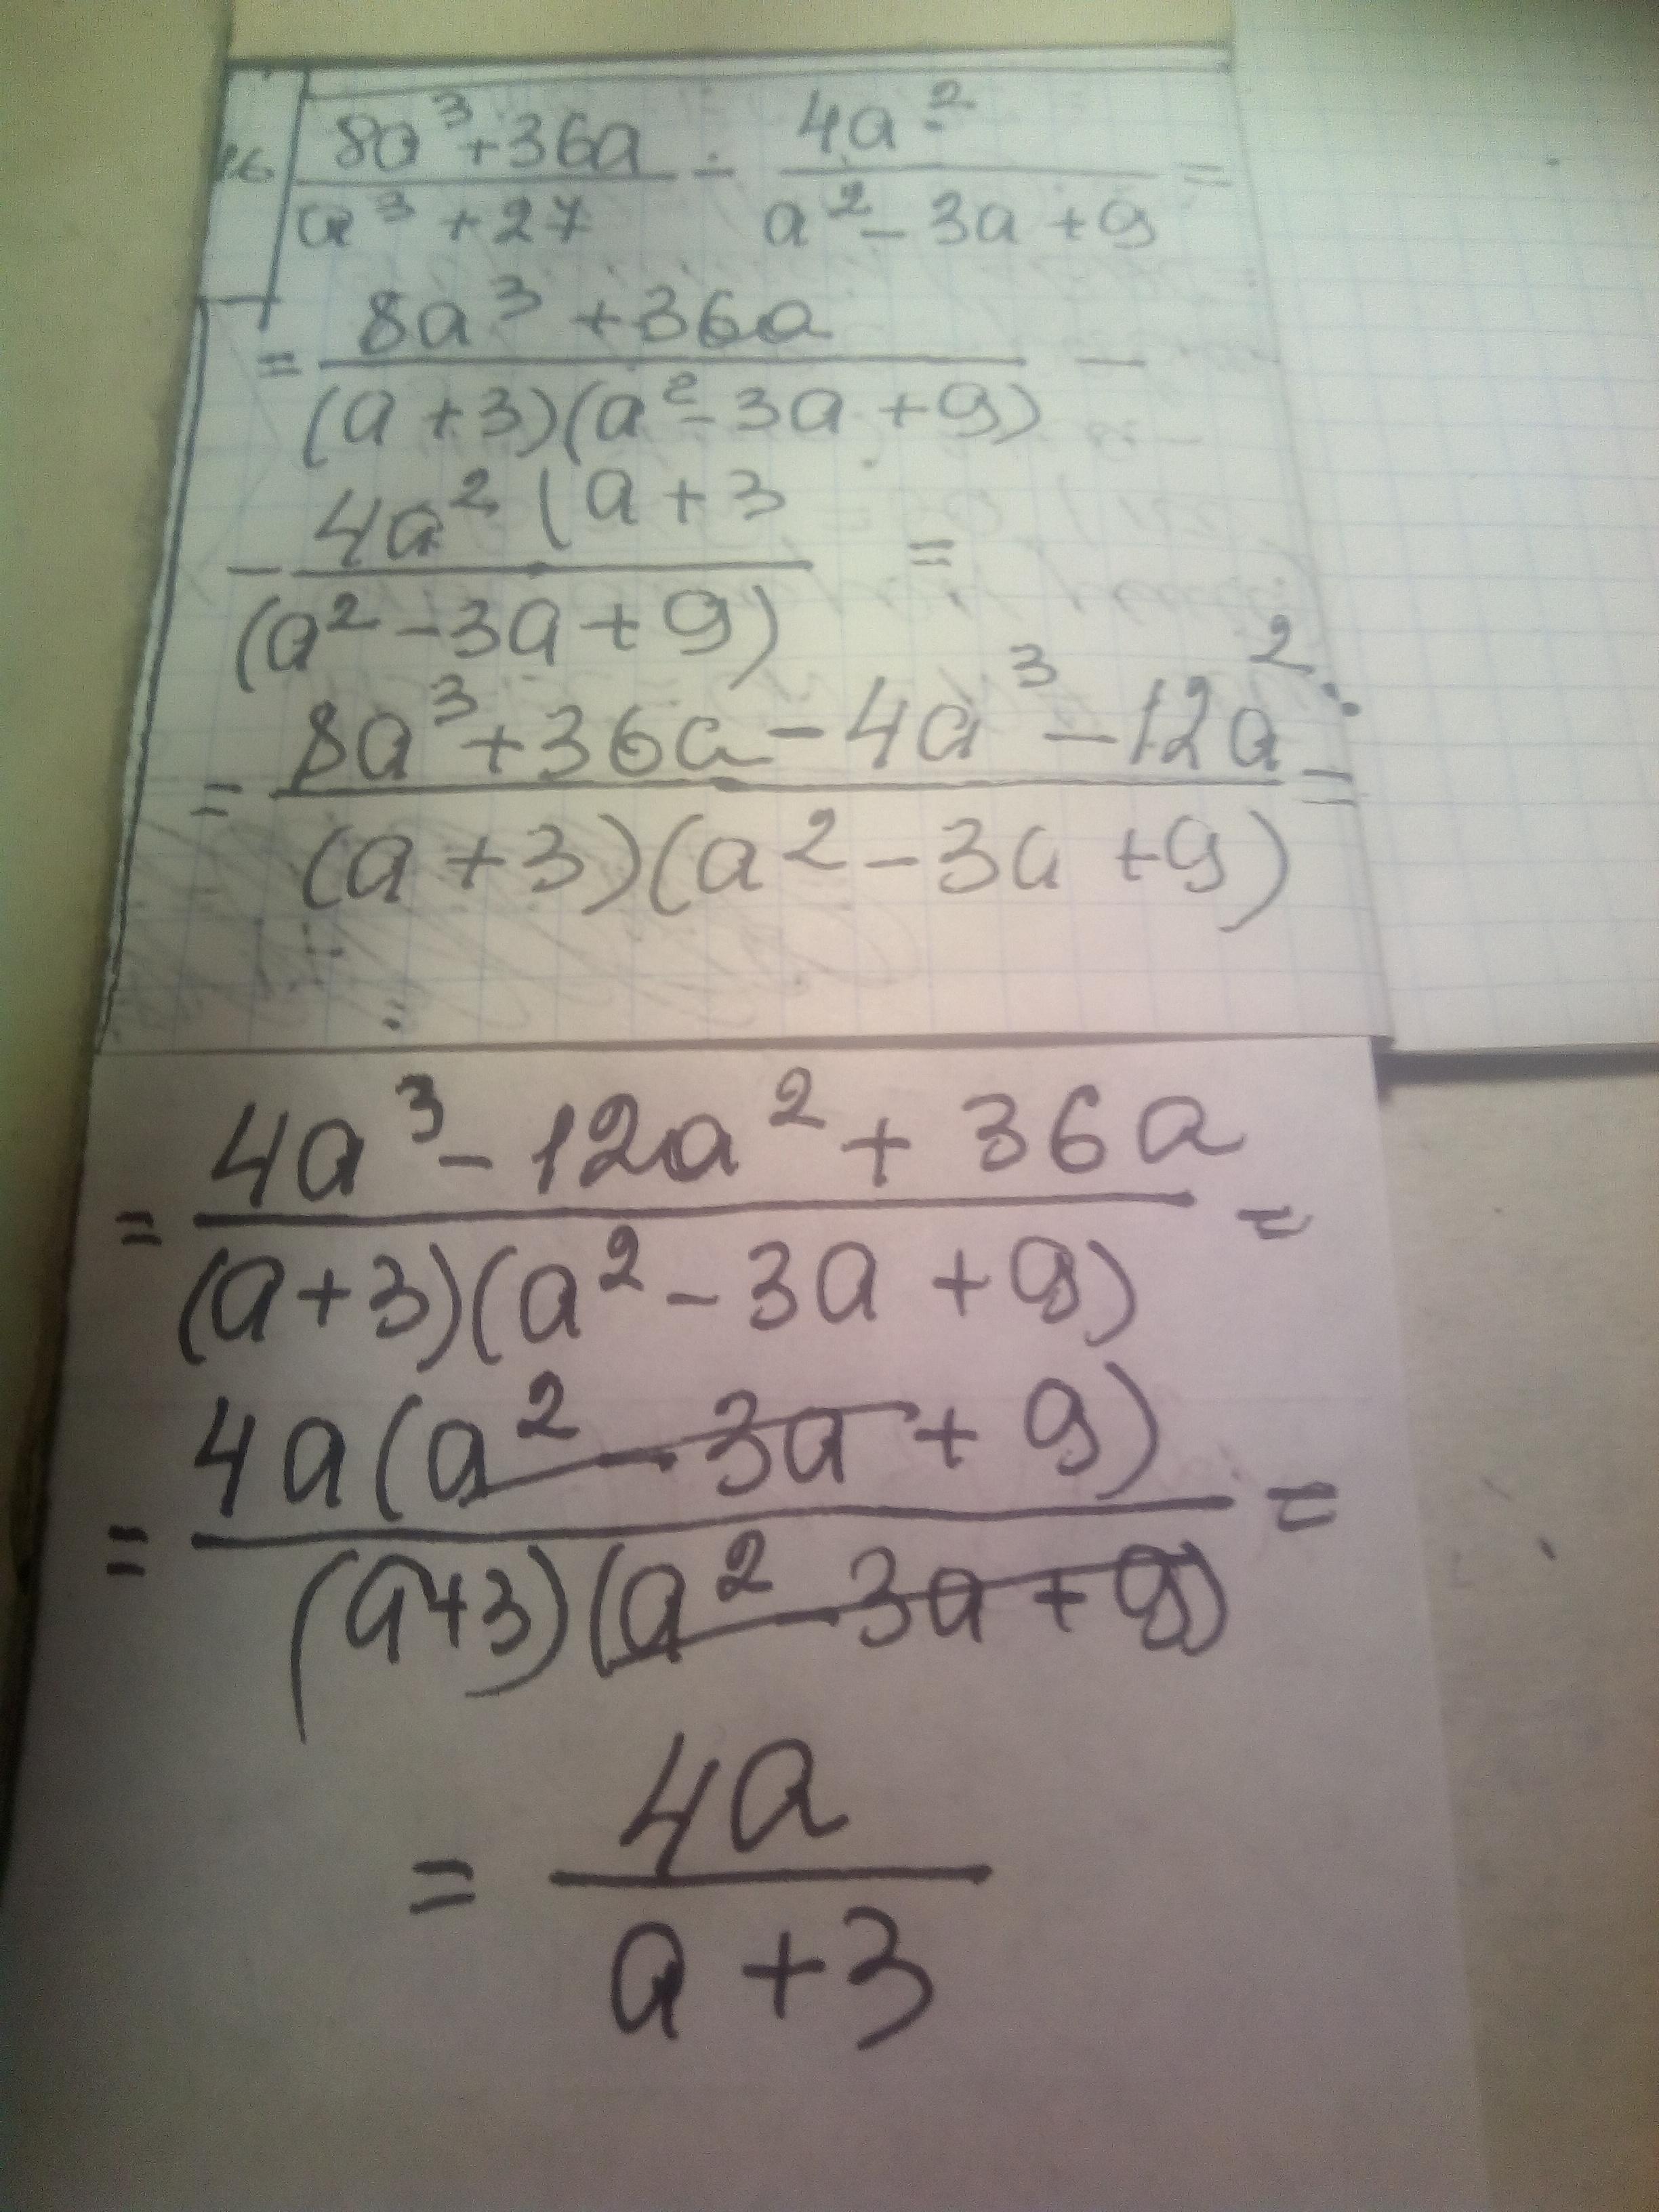 16 (8a³+36a)/(a³+27) - 4a²/(a²-3a+9) =
= (8a³+36a)/((a+3)(a²-3a+9)) -
- 4a²(a+3/(a²-3a+9) =
= (8a³+36a-4a³-12a²)/((a+3)(a²-3a+9)) =
= (4a³-12a²+36a)/((a+3)(a²-3a+9)) =
= 4a(a²-3a+9)/((a+3)(a²-3a+9)) =
= 4a/(a+3)